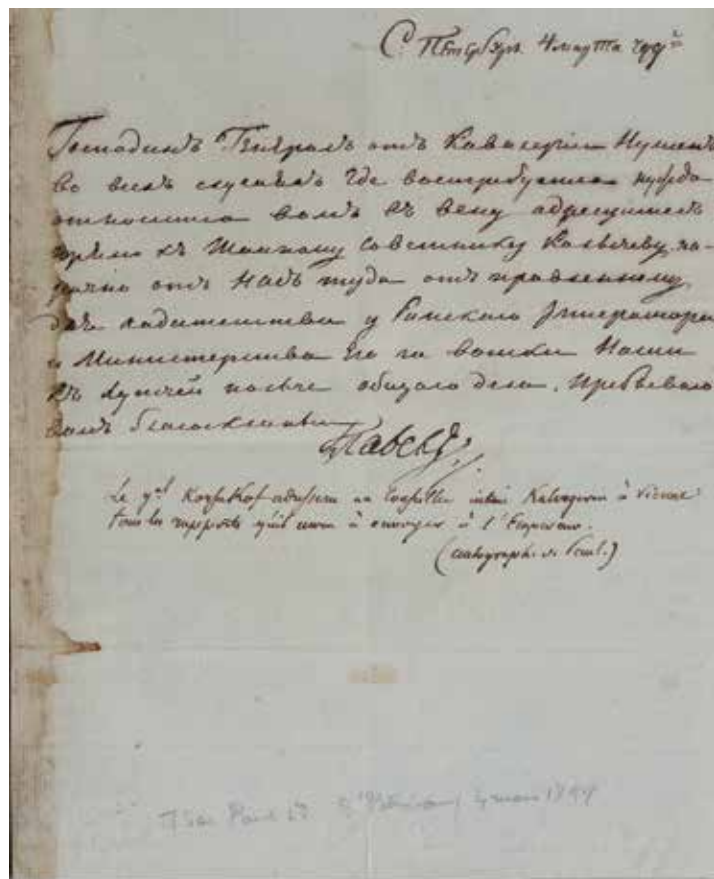 С. Петербург 4 марта 799
Господинъ Генералъ отъ Кавалерии
во всехъ случаяхъ где востребуется нужда
относится вамъ въ вену адресуитесь
прямо къ Тайному советнику Колычеву на-
рочно отъ Насъ туда отправленному
для ходатаиства у Римскаго Императора
и Министерства Его за воиски Наши
къ лутчей ползе общаго дела. Пребываю
вамъ благосклонный
Павелъ
Le gal Korsakof adressera au Conseiller intime à Vienne
tous les rapports qu'il aura à envoyer à l'Empereur.
(autographe de Paul.)
Tsar Paul 1er mars